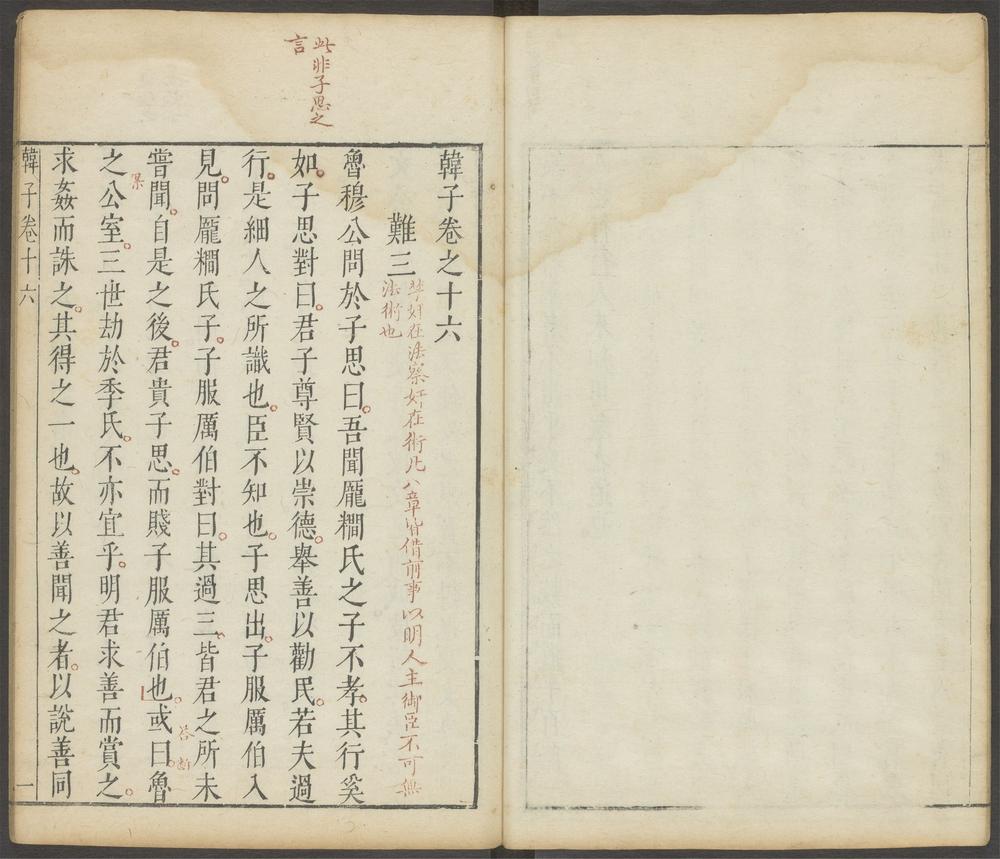 此非子思之
言
韓子卷之十六
難三
禁奸在法察奸在術此八章皆借前事以明人主御臣不可無
法術也
魯穆公問於子思曰吾聞龐𥻘氏之子不孝其行奚
如子思對曰君子尊賢以崇德舉善以勸民若夫過
行是細人之所識也臣不知也子思出子服厲伯入
見問龐𥻘氏子子服厲伯對曰其過三皆君之所未
嘗聞自是之後君貴子思而賤子服厲伯也或曰魯
答斷
之公室三世劫於季氏不亦宜乎明君求善而賞之
求姦而誅之其得之一也故以善聞之者以說善同
韓子卷十六
一